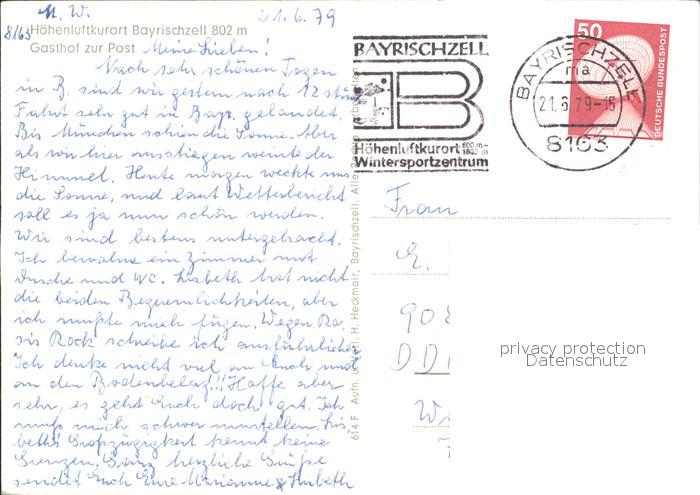 M. W. 21.6.79
8163
Höhenluftkurort Bayrischzell 802 m
Gasthof zur Post
Meine Lieben!
Nach sehr schönen Tagen
in B. sind wir gestern nach 12 stün
Fahrt sehr gut in Bayr. gelandet.
Bis München schien die Sonne. Aber
als wir hier ausstiegen weinte der
Himmel. Heute morgen weckte uns
die Sonne, und laut Wetterbericht
soll es ja nun schön werden.
Wir sind bestens untergebracht.
Ich bewohne ein Zimmer mit
Dusche und WC. Lisbeth hat nicht
die beiden Bequemlichkeiten, aber
ich mußte mich fügen. Wegen Ro-
sis Rock schreibe ich ausführlicher
Ich denke nicht viel an Euch und
an den Bodenbelag!!! Hoffe aber
sehr, es geht Euch doch gut. Ich
muß mich schwer umstellen. Lis
beths Großzügigkeit kennt keine
Grenzen. Ganz herzliche Grüße
sendet Euch Eure Marianne &
614 F Aufn. u. Verl. H. Heckmair, Bayrischzell. Alle Rechte vorbehalten
BAYRISCHZELL
B
Höhenluftkurort 800 m - 1802 m
Wintersportzentrum
BAYRISCHZELL
ma
21.6.79-15
8163
50
DEUTSCHE BUNDESPOST
Frau
E.
90
DD
W
privacy protection
Datenschutz